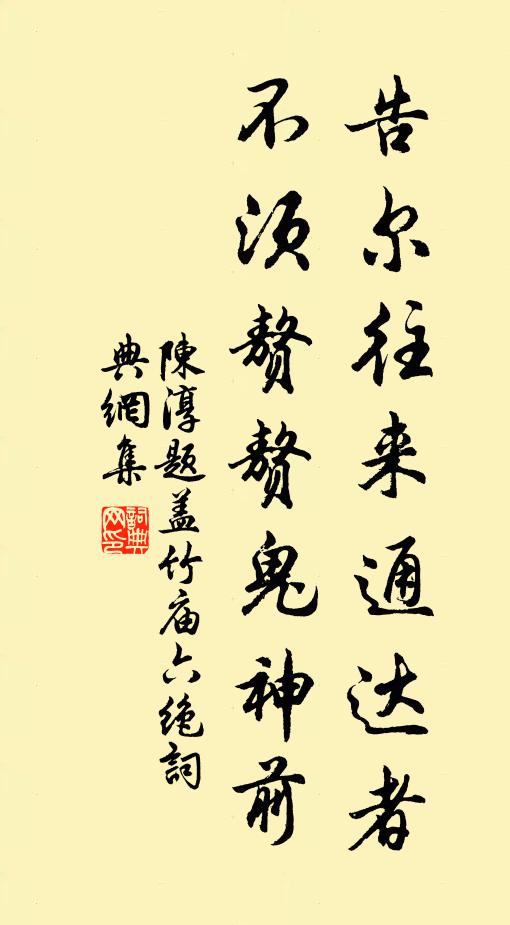 告尔往来通达者
不须赘赘鬼神前
陳淳题盖竹庙六绝詞
典網集
詞典
网印